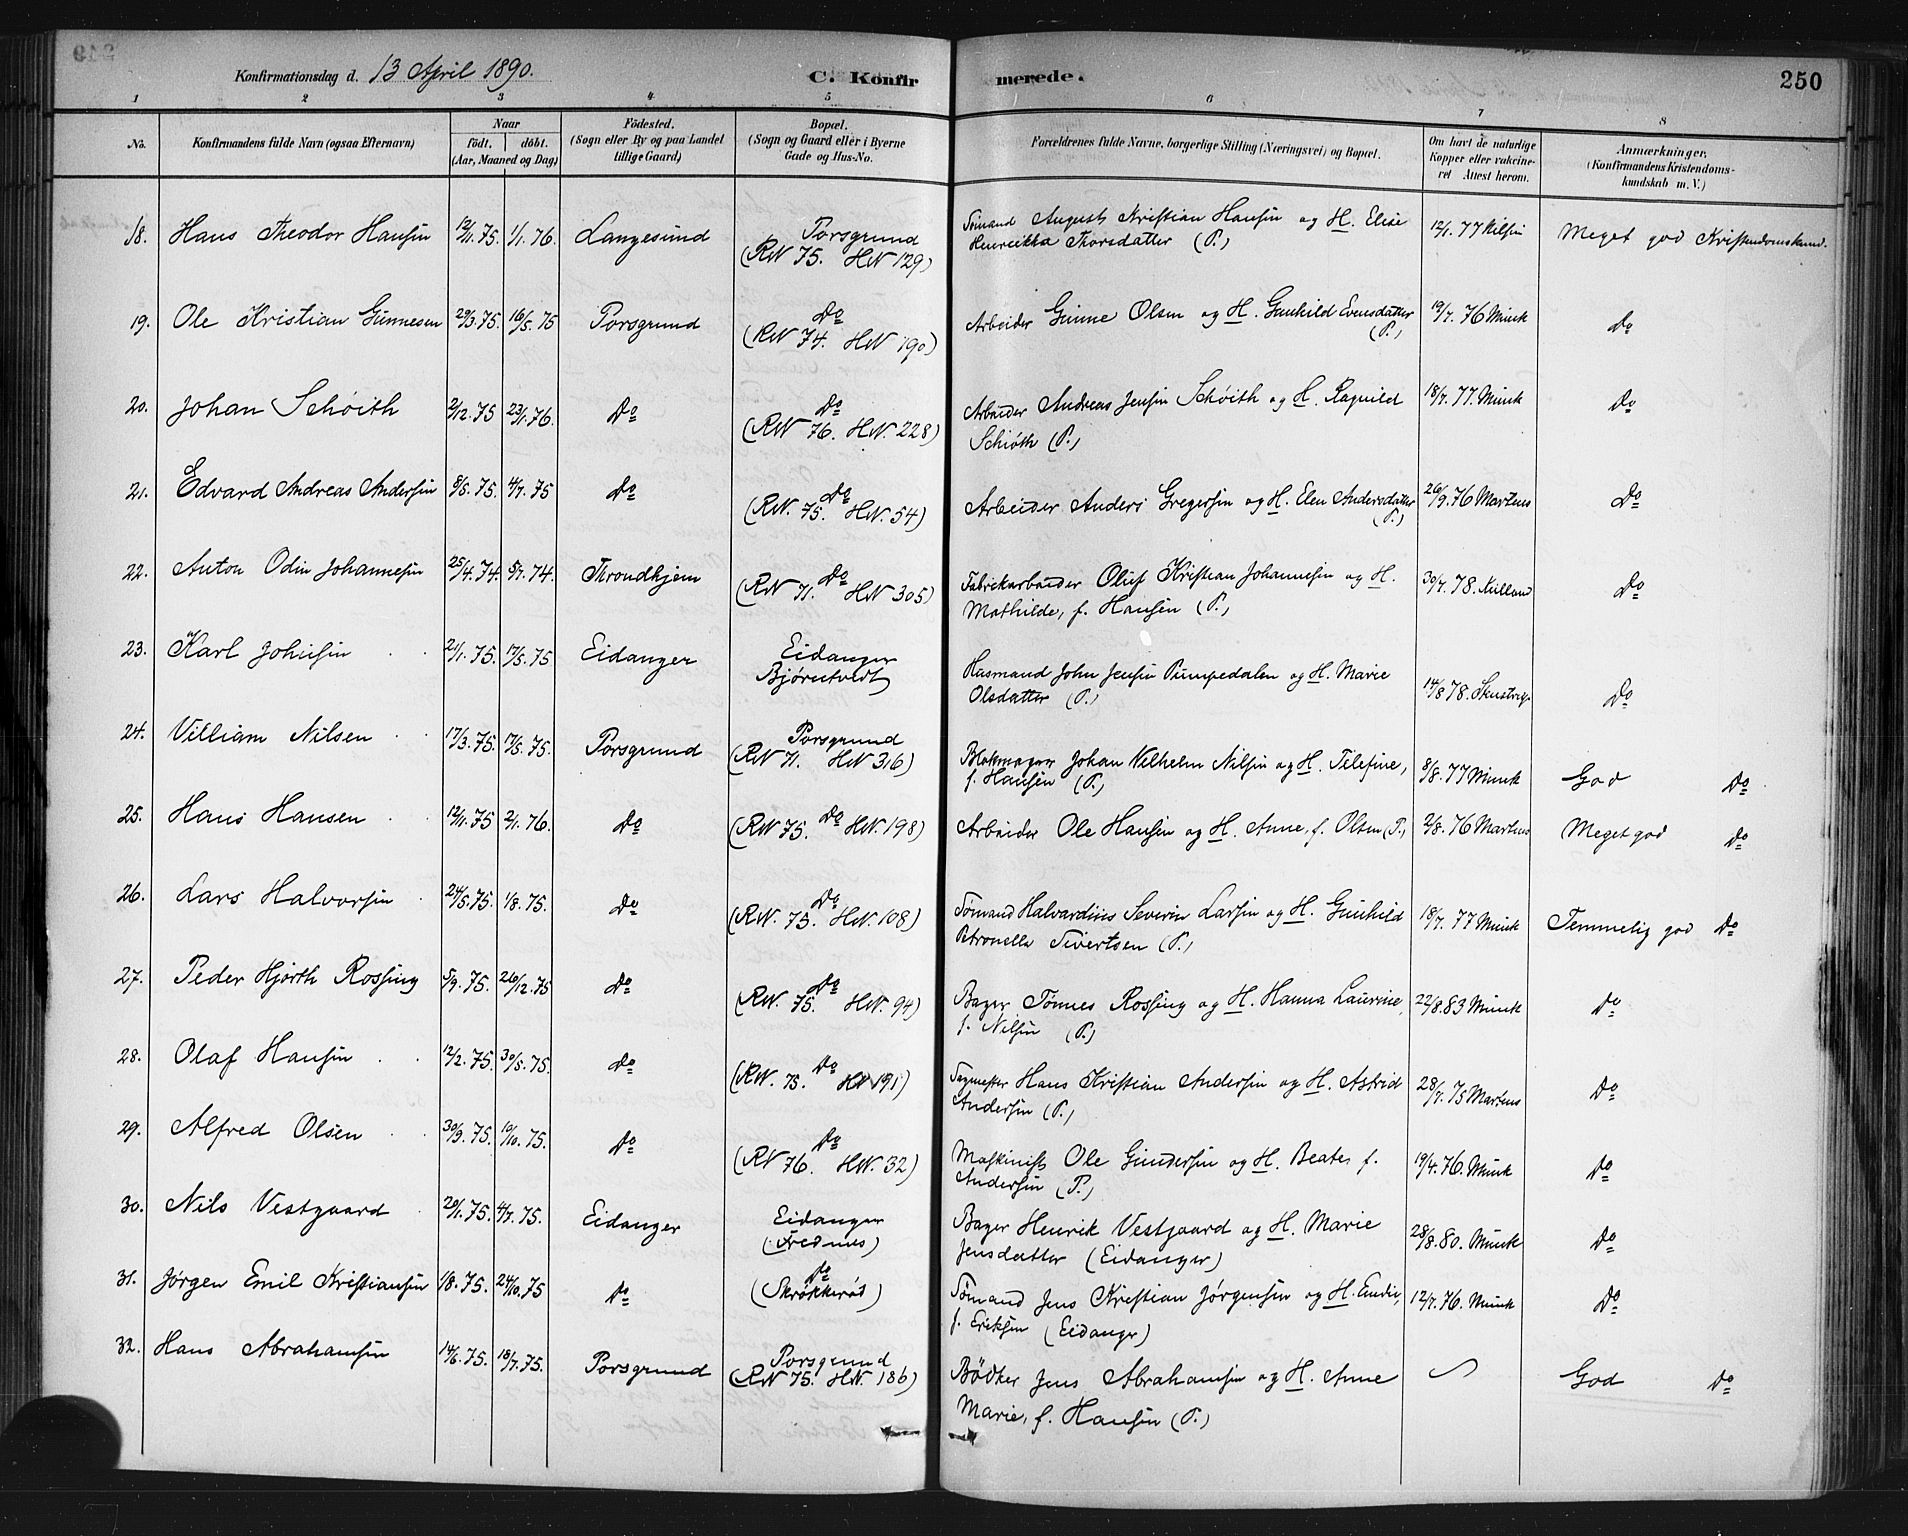 250
Konfirmationsdag d. 13 April 1890.
C. Konfirmerede.
1 2 3 4 5 6 7 8
No.
Konfirmandens fulde Navn (ogsaa Efternavn)
Naar
födt. döbt.
(Aar, Maaned og Dag)
Födested.
(Sogn eller By og paa Landet
tillige Gaard)
Bopæl.
(Sogn og Gaard eller i Byerne
Gade og Hus-No.
Forældrenes fulde Navne, borgerlige Stilling (Næringsvei) og Bopæl.
Om havt de naturlige
Kopper eller vakcine-
ret Attest herom.
Anmærkninger,
(Konfirmandens Kristendoms-
kundskab m. V.)
18. Hans Theodor Hansen 12/11. 75. 1/1. 76. Langesund Porsgrund Sömand August Kristian Hansen og H. Elise 12/1. 77 Nilsen Meget god Kristendomskund.
(RN 75. HN 129) Henreikka Thorsdatter (P.)
19. Ole Kristian Gunnesen 29/3. 75. 16/5. 75 Porsgrund Do Arbeider Gunne Olsen og H. Gunhild Evensdatter 19/7. 76 Munk Do
(RN 74. HN 190) (P.)
20. Johan Schöith 2/12. 75 23/1. 76. Do Do Arbeider Andreas Jensen Schöith og H. Ragnild 18/7. 77. Munk Do
(RN 76. HN. 228) Schiöth (P.)
21. Edvard Andreas Andersen 8/5. 75. 4/7. 75 Do Do Arbeider Anders Gregersen og H. Elen Andersdatter 26/9. 76 Martens Do
(RN. 75. HN. 54) (P.)
22. Anton Odin Johannesen 25/4. 74. 5/7. 74. Throndhjem Do Fabrikarbeider Oluf Kristian Johannesen og H. 30/7. 78. Do
(RN 71. HN 305) Mathilde, f. Hansen (P.)
23. Karl Johnsen 21/1. 75. 17/5. 75 Eidanger Eidanger Husmand John Jensen Pumpedalen og H. Marie 14/8 78. Do
Björntvedt Olsdatter (P.)
24. Villiam Nilsen 17/3. 75. 17/5. 75. Porsgrund Porsgrund Blokmager Johan Vilhelm Nilsen og H. Tilefine, 8/8. 77 Munk God Do
(RN 71. HN 316) f. Hansen (P.)
25. Hans Hansen 12/11. 75 2/1. 76. Do Do Arbeider Ole Hansen og H. Anne, f. Olsen (P.) 2/8. 76 Martens Meget god Do
(RN 75. HN. 198)
26. Lars Halvorsen 24/5. 75. 1/8. 75. Do Do Sömand Halvardines Severin Larsen og H. Gunhild 18/7. 77 Munk Temmelig god Do
(RN. 75. HN. 108) Petronelle Sivertsen (P.)
27. Peder Hjorth Rossing 5/9. 75. 26/12. 75 Do Do Bager Tönnes Rossing og H. Hanna Laurine, 22/8. 83 Munk Do
(RN. 75. HN. 94) f. Nilsen (P.)
28. Olaf Hansen 12/2. 75. 30/5. 75. Do Do Sagmester Hans Kristian Andersen og H. Astrid 28/7. 75 Martens Do
(RN. 75. HN 191) Andersen (P.)
29. Alfred Olsen 30/3. 75. 10/10. 75. Do Do Maskinist Ole Gundersen og H. Beate, f. 19/4. 76. Munk Do
(RN 76. HN. 32) Andersen (P.)
30. Nils Vestgaard 20/1. 75. 4/7. 75. Eidanger Eidanger Bager Henrik Vestgaard og H. Marie 28/8. 80. Munk Do
(Frednes) Jensdatter (Eidanger)
31. Jörgen Emil Kristiansen 1/8. 75. 24/10. 75 Do Do Sömand Jens Kristian Jörgensen og H. 12/7. 76. Munk Do
(Skrökkeröd) f. Eriksen (Eidanger)
32. Hans Abrahamsen 14/6. 75. 18/7. 75. Porsgrund Porsgrund Bödker Jens Abrahamsen og H. Anne God Do
(RN 75. HN. 186) Marie, f. Hansen (P.)